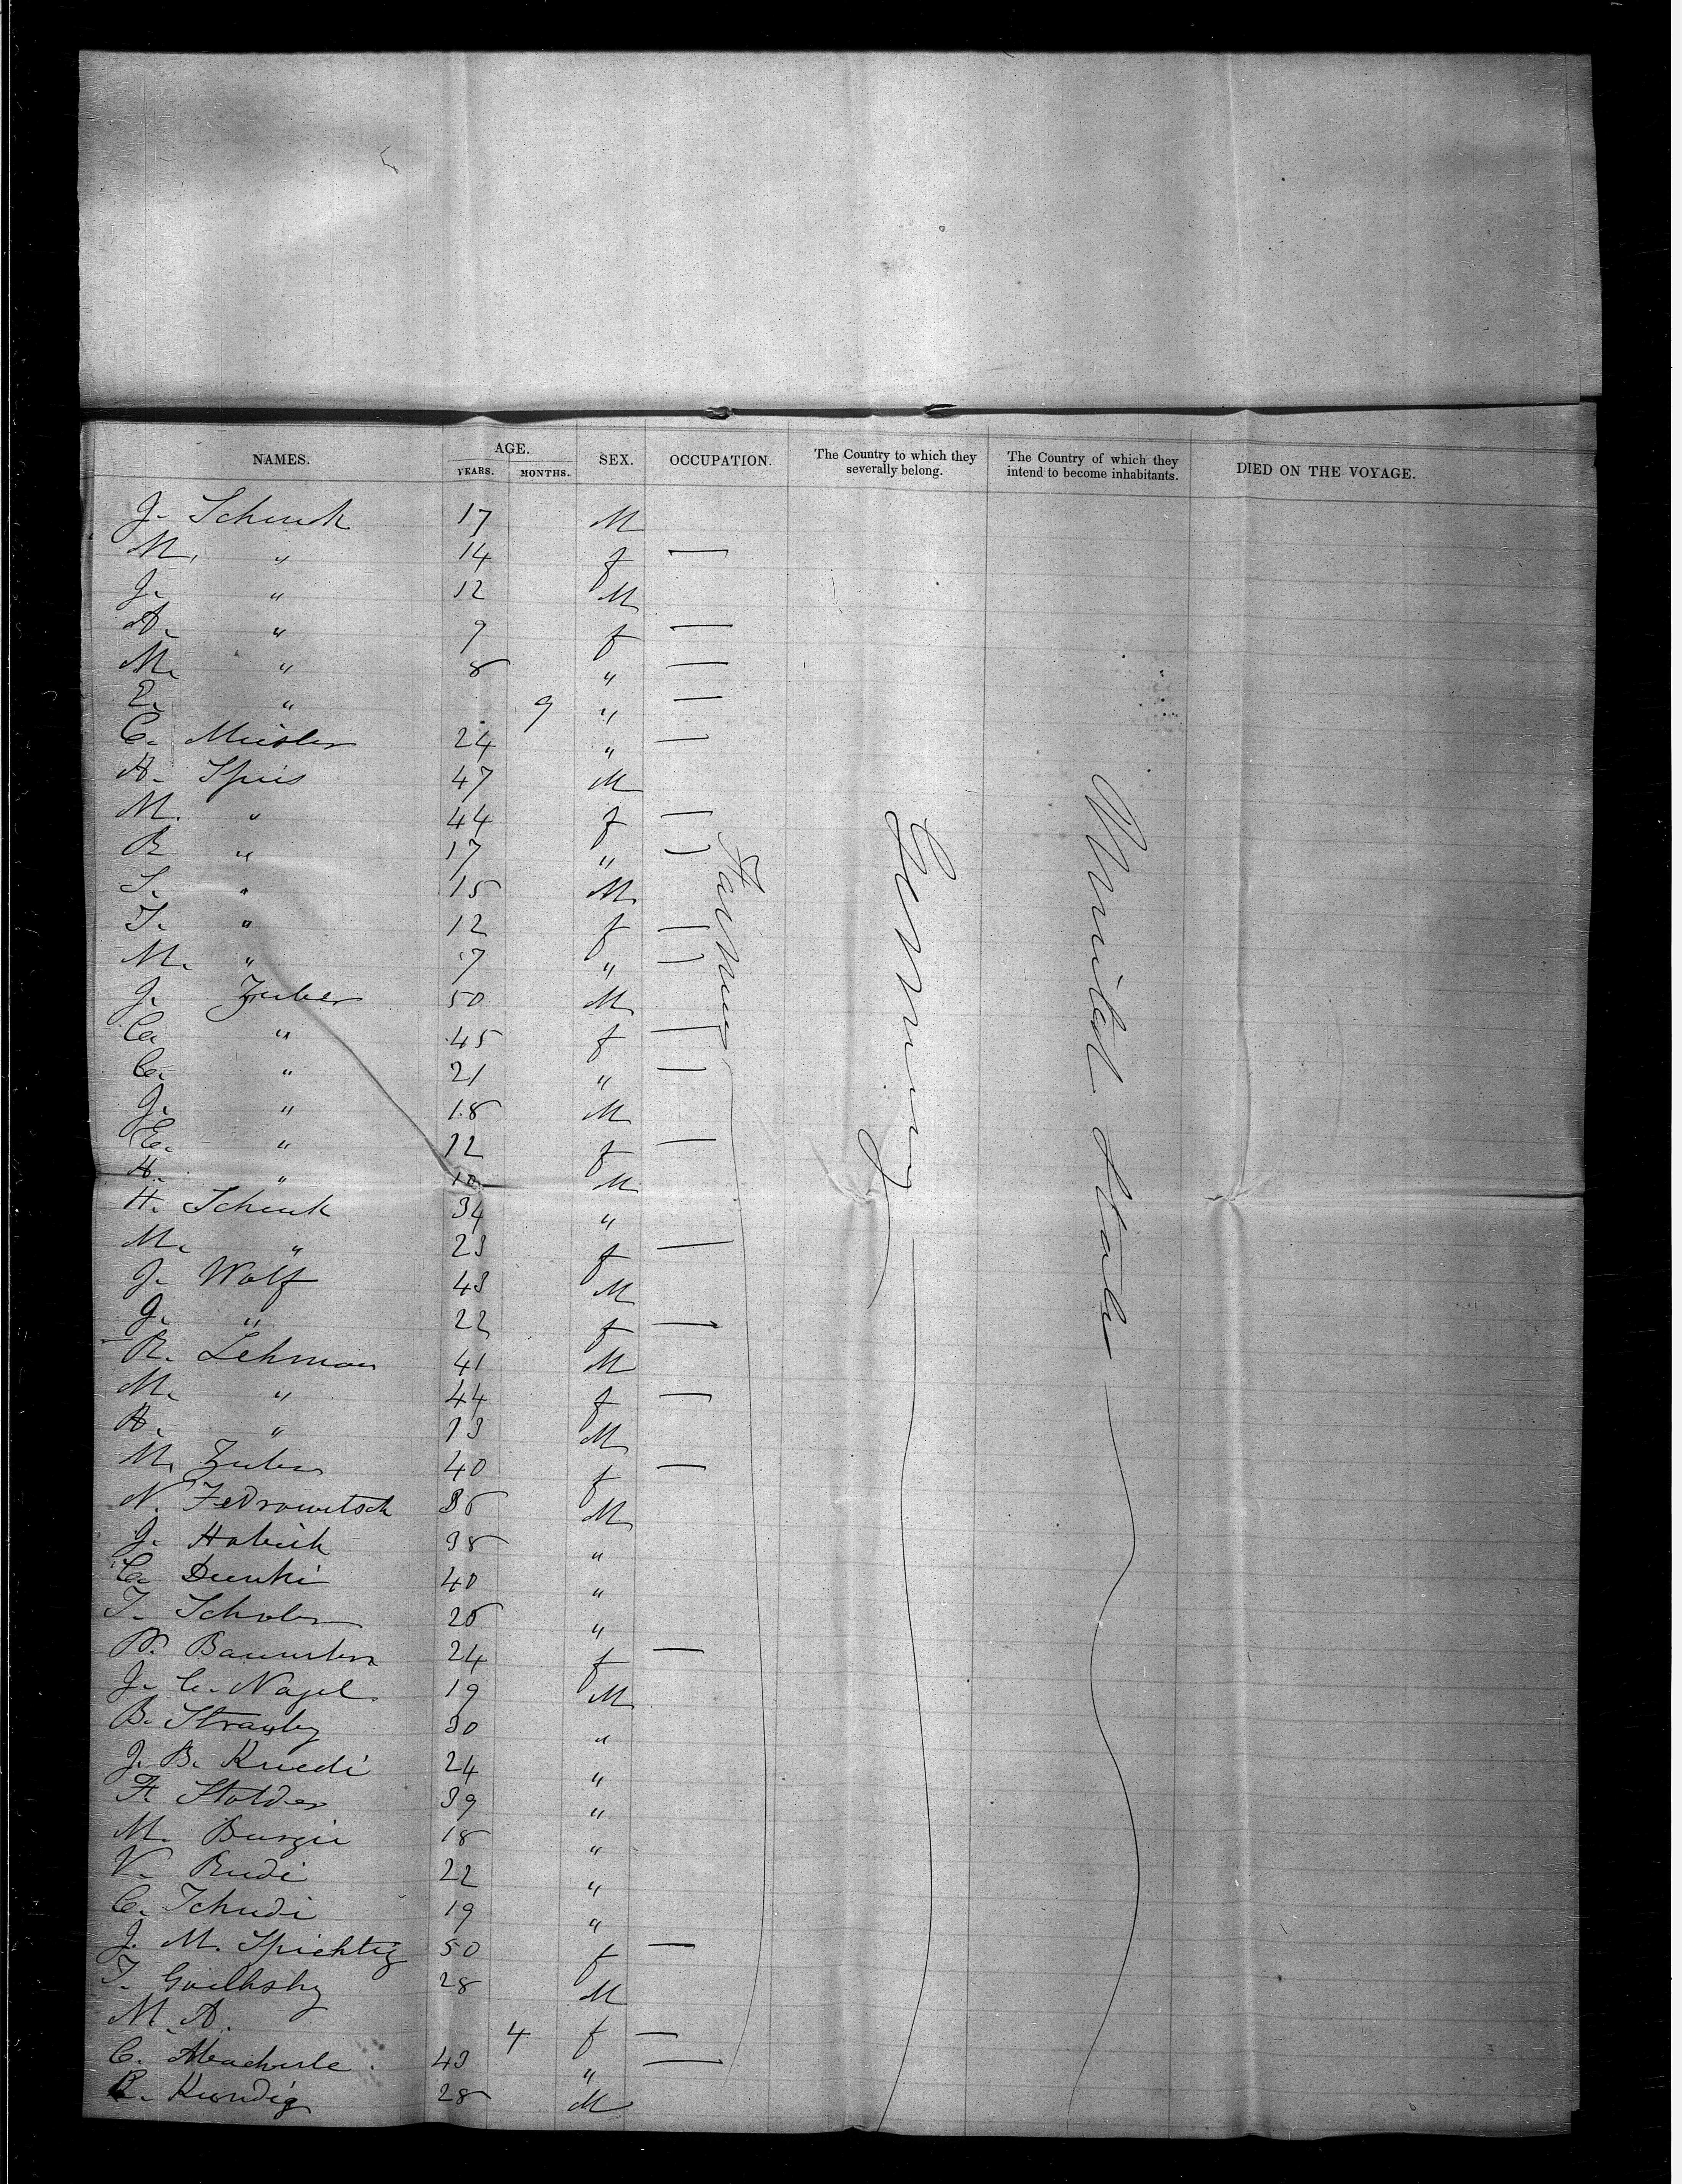 NAMES. AGE. YEARS. MONTHS. SEX. OCCUPATION. The Country to which they severally belong. The Country of which they intend to become inhabitants. DIED ON THE VOYAGE.
Farmers
Germany
United States
J. Schenk 17 M
M. " 14 f —
J. " 12 M
A. " 9 f —
M. " 8 " —
E. " 9 " —
C. Meisler 24 " —
A. Spies 47 M
M. " 44 f —
R " 17 " —
S. " 15 M
T. " 12 f —
M. " 7 " —
J. Zuber 50 M
Ca " 45 f —
Ca. " 21 " —
J. " 18 M
E. " 12 f —
A. " 10 M
H. Schenk 34 "
M. " 23 f —
J. Wolf 43 M
J. " 22 f —
R. Lehman 41 M
M. " 44 f —
A. " 13 M
M. Zuber 40 f —
N. Fedrowitsch 36 M
J. Habich 38 "
Ca Dunki 40 "
T. Schober 26 "
24 f —
J. C. Nagel 19 M
B. 30 "
J. B. Kuedi 24 "
F. Stolder 39 "
M. Burgii 18 "
V. Rudi 22 "
C. Tchudi 19 "
J. M. Spichtig 50 f —
T. 28 M
M. A. 4 f —
C. 43 " —
R. Kundig 28 M